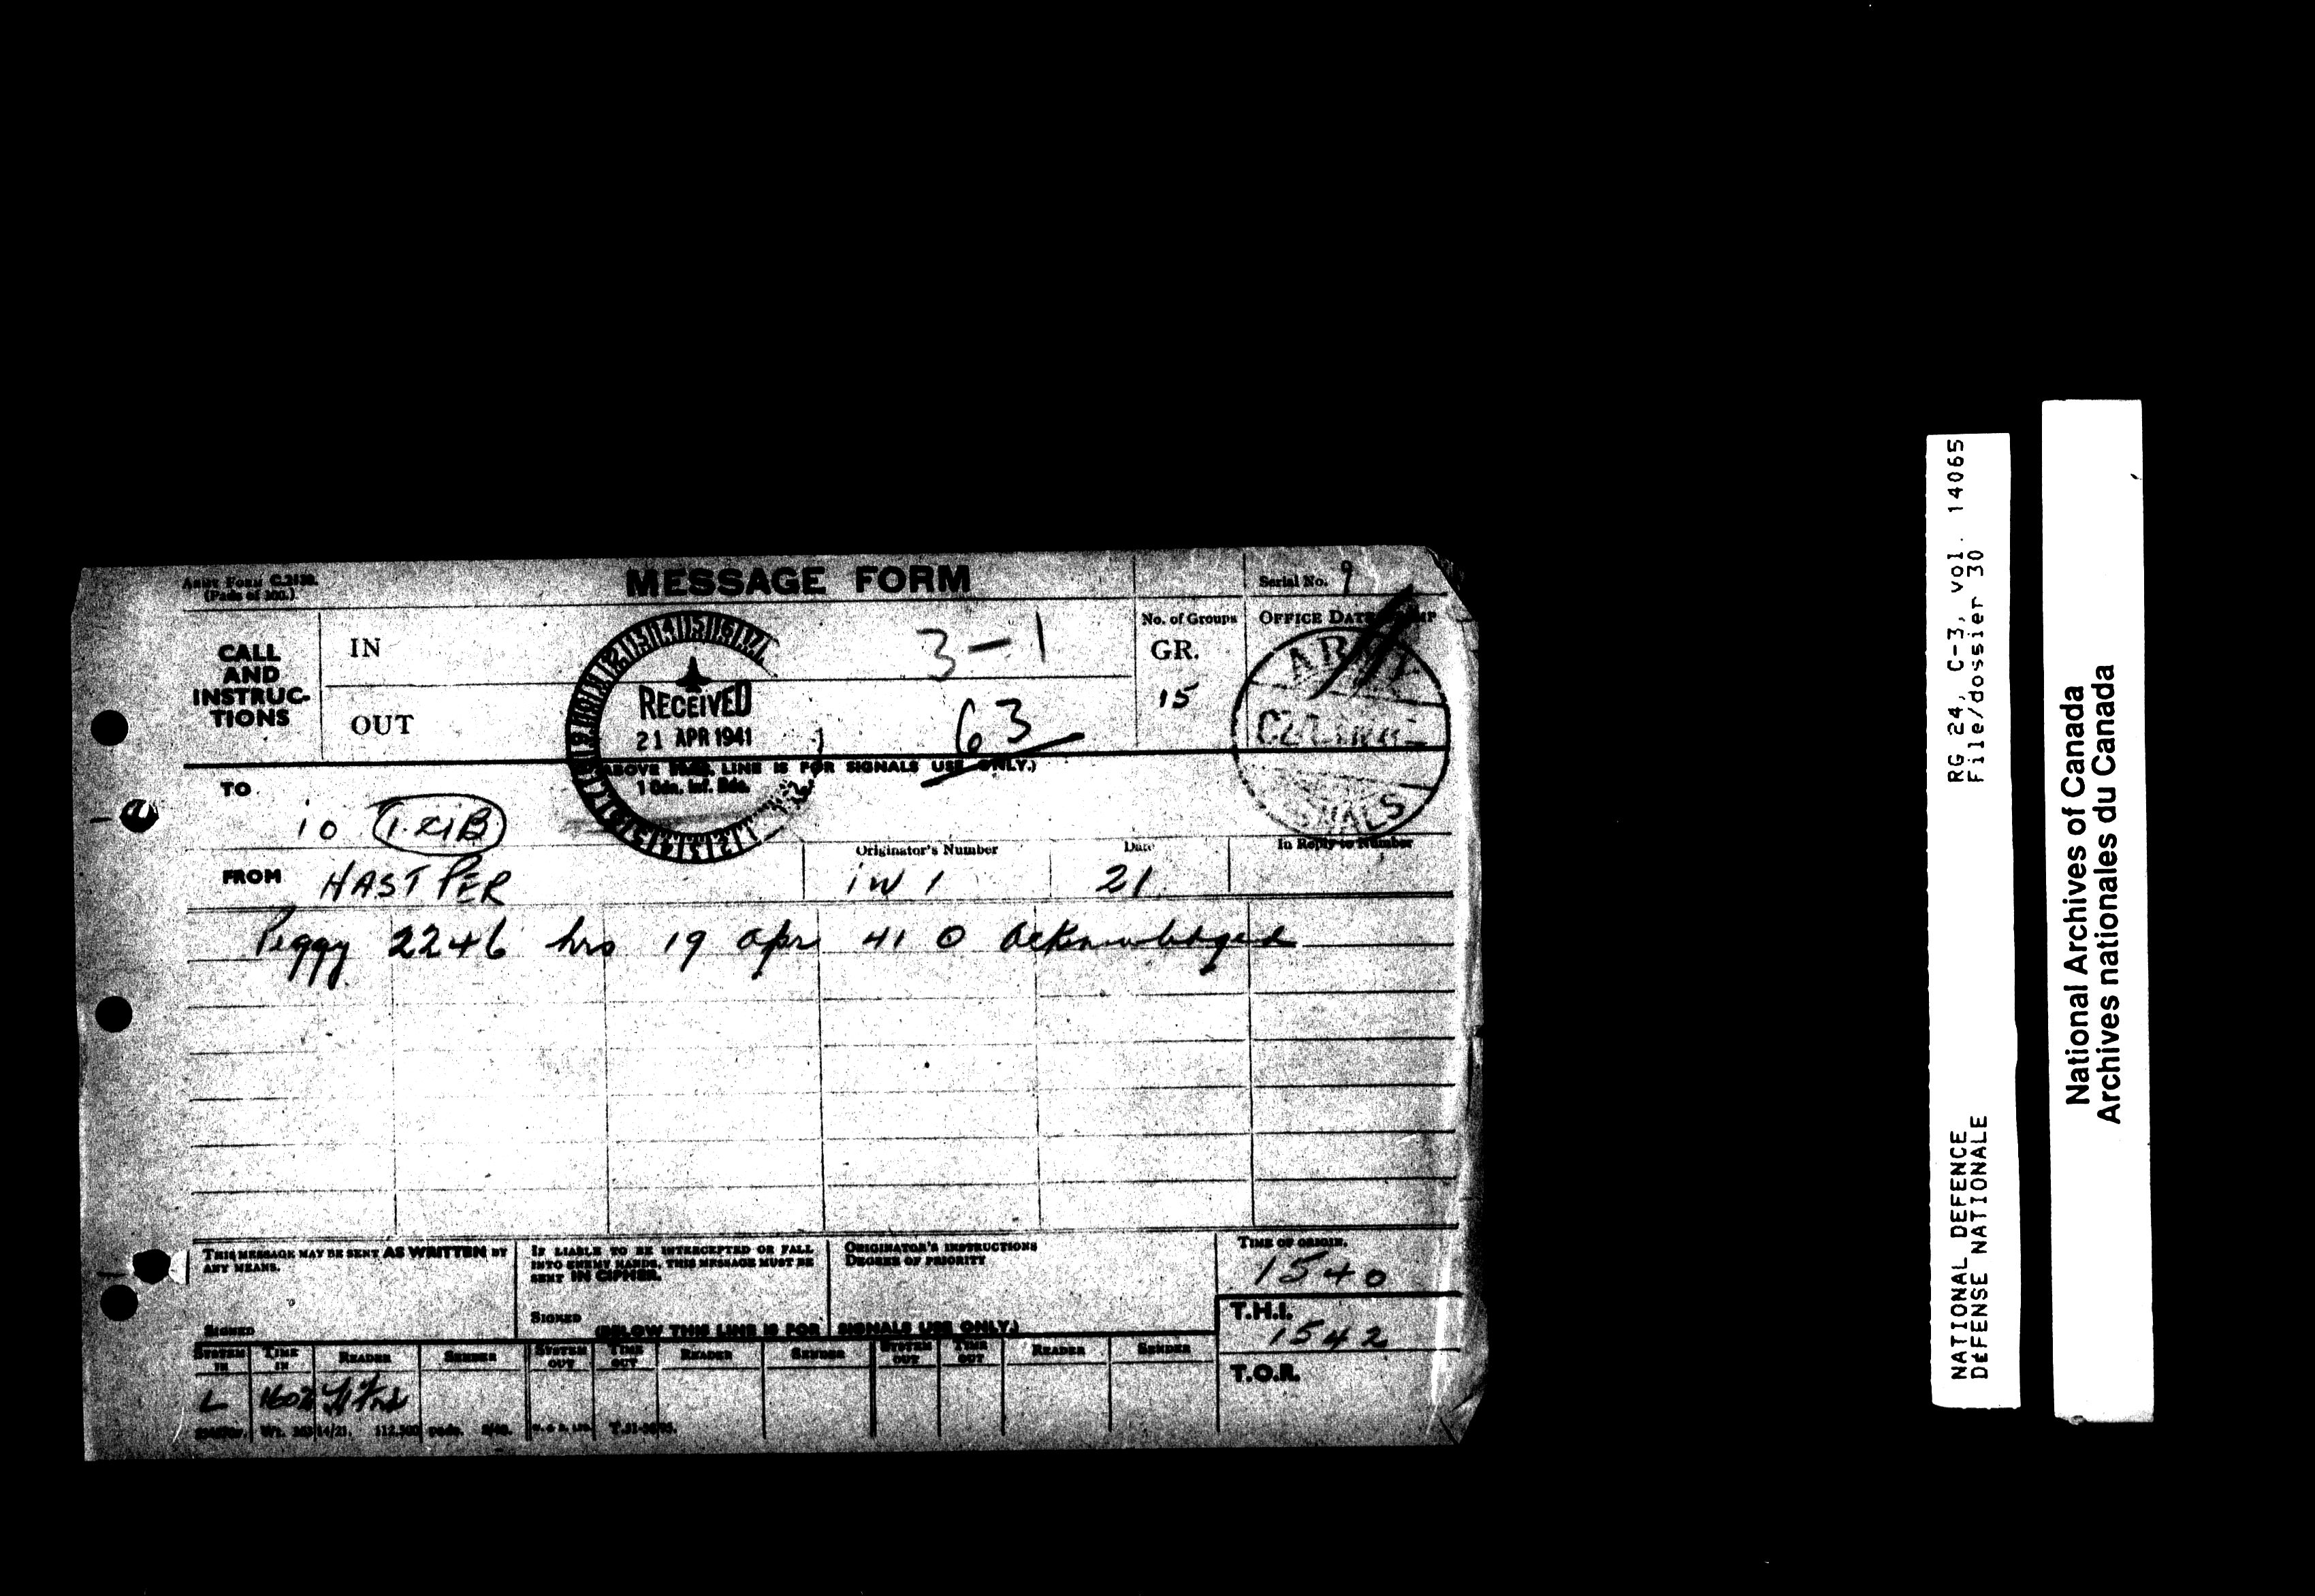 ARMY FORM C.2128.
(Pads of 100.)
MESSAGE FORM
Serial No. 9
CALL AND INSTRUC-TIONS
IN
OUT
3-1
63
No. of Groups
GR.
15
OFFICE DATE STAMP
ARMY
SIGNALS
RECEIVED
21 APR 1941
1 Cdn. Inf. Bde.
(ABOVE THIS LINE IS FOR SIGNALS USE ONLY.)
TO
io
FROM HAST PER
Originator's Number
iW 1
Date
21
In Reply to Number
Peggy 2246 hrs 19 apr 41 O acknowledged
THIS MESSAGE MAY BE SENT AS WRITTEN BY ANY MEANS.
SIGNED
IF LIABLE TO BE INTERCEPTED OR FALL INTO ENEMY HANDS, THIS MESSAGE MUST BE SENT IN CIPHER.
SIGNED
ORIGINATOR'S INSTRUCTIONS
DEGREE OF PRIORITY
TIME OF ORIGIN.
1540
T.H.I.
1542
T.O.R.
(BELOW THIS LINE IS FOR SIGNALS USE ONLY.)
SYSTEM IN TIME IN READER SENDER SYSTEM OUT TIME OUT READER SENDER SYSTEM OUT TIME OUT READER SENDER
L 1602
NATIONAL DEFENCE RG 24, C-3, vol. 14065
DÉFENSE NATIONALE File/dossier 30
National Archives of Canada
Archives nationales du Canada